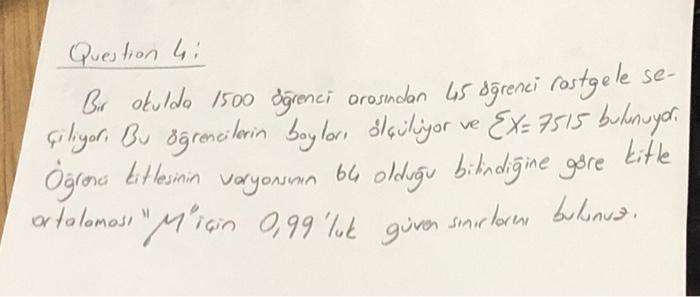 Question 4:
Bir okulda 1500 öğrenci arasından 45 öğrenci rastgele se-
çiliyor. Bu öğrencilerin boyları ölçülüyor ve ΣX=7515 bulunuyor.
Öğrenci kitlesinin varyansının 64 olduğu bilindiğine göre kitle
ortalaması "M" için 0,99'luk güven sınırlarını bulunuz.